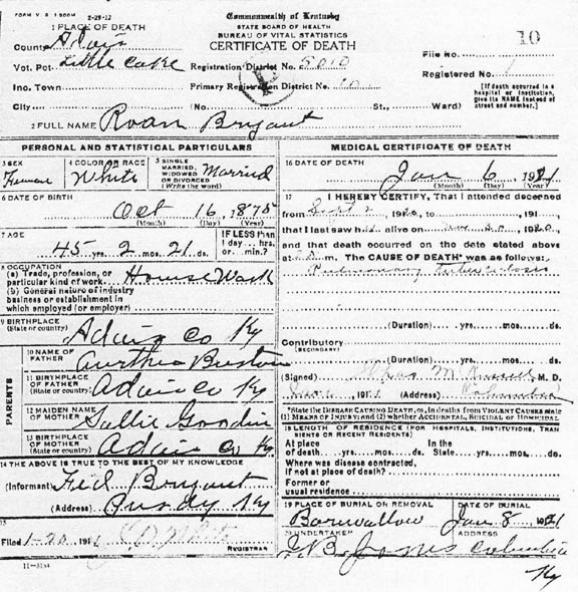 FORM V. S. 1 500M 2-29-12
Commonwealth of Kentucky
STATE BOARD OF HEALTH
BUREAU OF VITAL STATISTICS
CERTIFICATE OF DEATH
1 PLACE OF DEATH
County Adair
Vot. Pct. Little Cake Registration District No. 5010
File No. 10
Inc. Town Primary Registration District No. 10
Registered No. 1
City (No. St., Ward)
[If death occurred in a hospital or institution, give its NAME instead of street and number.]
2 FULL NAME Roan Bryant
PERSONAL AND STATISTICAL PARTICULARS
3 SEX
4 COLOR OR RACE White
5 SINGLE MARRIED, WIDOWED OR DIVORCED (Write the word) Married
6 DATE OF BIRTH
Oct 16, 1875
(Month) (Day) (Year)
7 AGE
45 yrs. 2 mos. 21 ds.
IF LESS than 1 day... hrs. or... min.?
8 OCCUPATION
(a) Trade, profession, or particular kind of work House Work
(b) General nature of industry business or establishment in which employed (or employer)
9 BIRTHPLACE
(State or country) Adair Co Ky
PARENTS
10 NAME OF FATHER
11 BIRTHPLACE OF FATHER
(State or country) Adair Co Ky
12 MAIDEN NAME OF MOTHER Sallie Goodin
13 BIRTHPLACE OF MOTHER
(State or country) Adair Co Ky
14 THE ABOVE IS TRUE TO THE BEST OF MY KNOWLEDGE
(Informant) Fed Bryant
(Address) Purdy Ky
15
Filed 1-20, 191
REGISTRAR
11-3184
MEDICAL CERTIFICATE OF DEATH
16 DATE OF DEATH
Jan 6, 1921
(Month) (Day) (Year)
17 I HEREBY CERTIFY, That I attended deceased
from Sept 2 1920, to 191
that I last saw h alive on 1920,
and that death occurred on the date stated above
at m. The CAUSE OF DEATH* was as follows:
Pulmonary Tuberculosis
(Duration) yrs. mos. ds.
Contributory
(SECONDARY)
(Duration) yrs. mos. ds.
(Signed) M. D.
191 (Address) Columbia
*State the DISEASE CAUSING DEATH, or, in deaths from VIOLENT CAUSES state (1) MEANS OF INJURY; and (2) whether ACCIDENTAL, SUICIDAL or HOMICIDAL.
18 LENGTH OF RESIDENCE (FOR HOSPITALS, INSTITUTIONS, TRANSIENTS OR RECENT RESIDENTS)
At place of death yrs. mos. ds. In the State yrs. mos. ds.
Where was disease contracted, if not at place of death?
Former or usual residence
19 PLACE OF BURIAL OR REMOVAL
DATE OF BURIAL
Jan 8, 1921
20 UNDERTAKER
ADDRESS
Jones Columbia
Ky